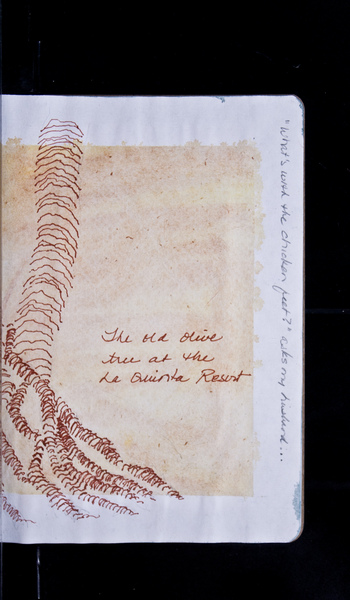 The old olive
tree at the
La Quinta Resort
"What's with the chicken feet?" asks my husband...